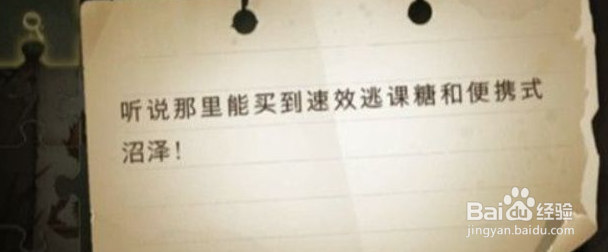 听说那里能买到速效逃课糖和便携式
沼泽!
Baidu经验
jingyan.baidu.com